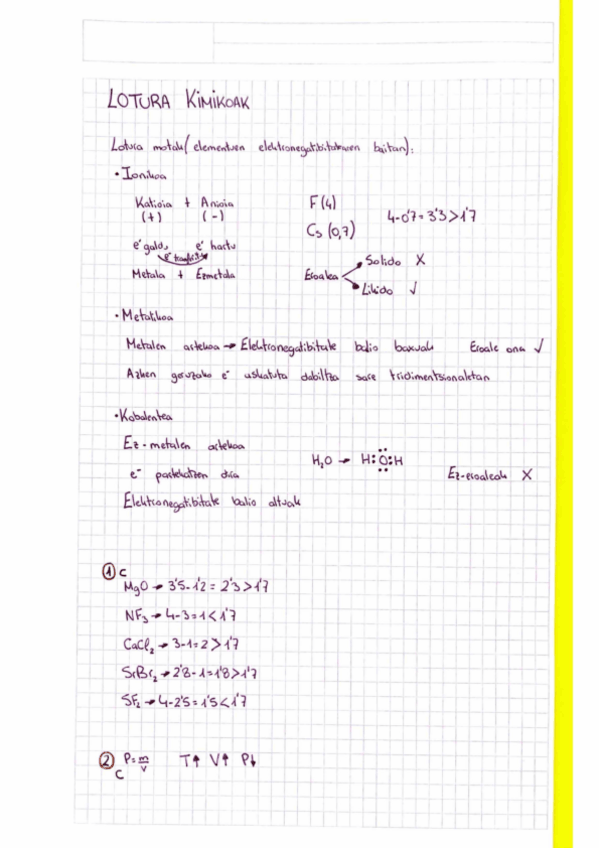 LOTURA KIMIKOAK
Lotura motak (elementuen elektronegatibitatearen baitan):
• Ionikoa
Katioia + Anioia
(+) (-)
e⁻ galdu e⁻ hartu
e⁻ transferitu
Metala + Ezmetala
F (4)
Cs (0,7)
4-0'7=3'3>1'7
Eroalea
Solido X
Likido ✓
• Metalikoa
Metalen artekoa → Elektronegatibitate balio baxuak Eroale ona ✓
Azken geruzako e⁻ askatuta dabiltza sare tridimentsionaletan
• Kobalentea
Ez-metalen artekoa
e⁻ partekatzen dira
Elektronegatibitate balio altuak
H₂O → H:O:H
Ez-eroaleak X
① C
MgO → 3'5-1'2=2'3>1'7
NF₃ → 4-3=1<1'7
CaCl₂ → 3-1=2>1'7
SrBr₂ → 2'8-1=1'8>1'7
SF₂ → 4-2'5=1'5<1'7
② P=m/V T↑ V↑ P↓
C